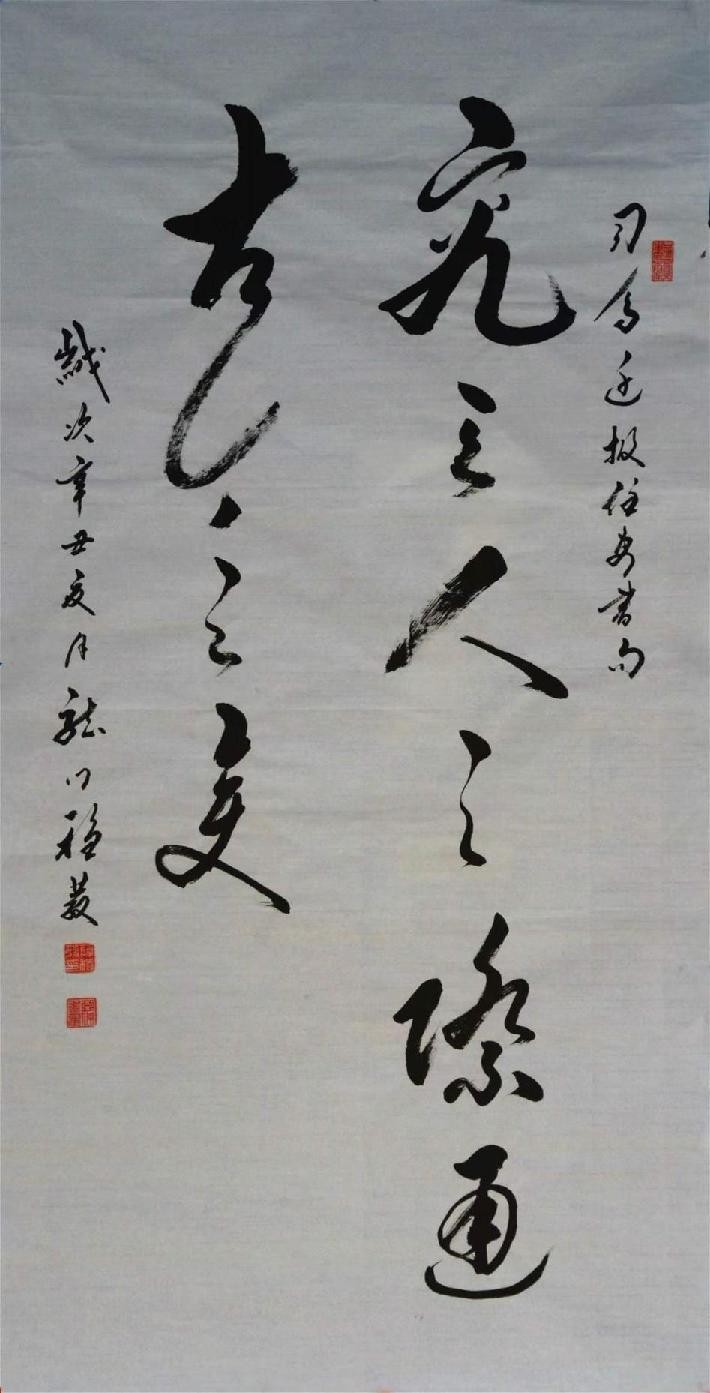 司馬遷報任安書句
究天人之際通
古今之變
歲次辛丑夏月龍門